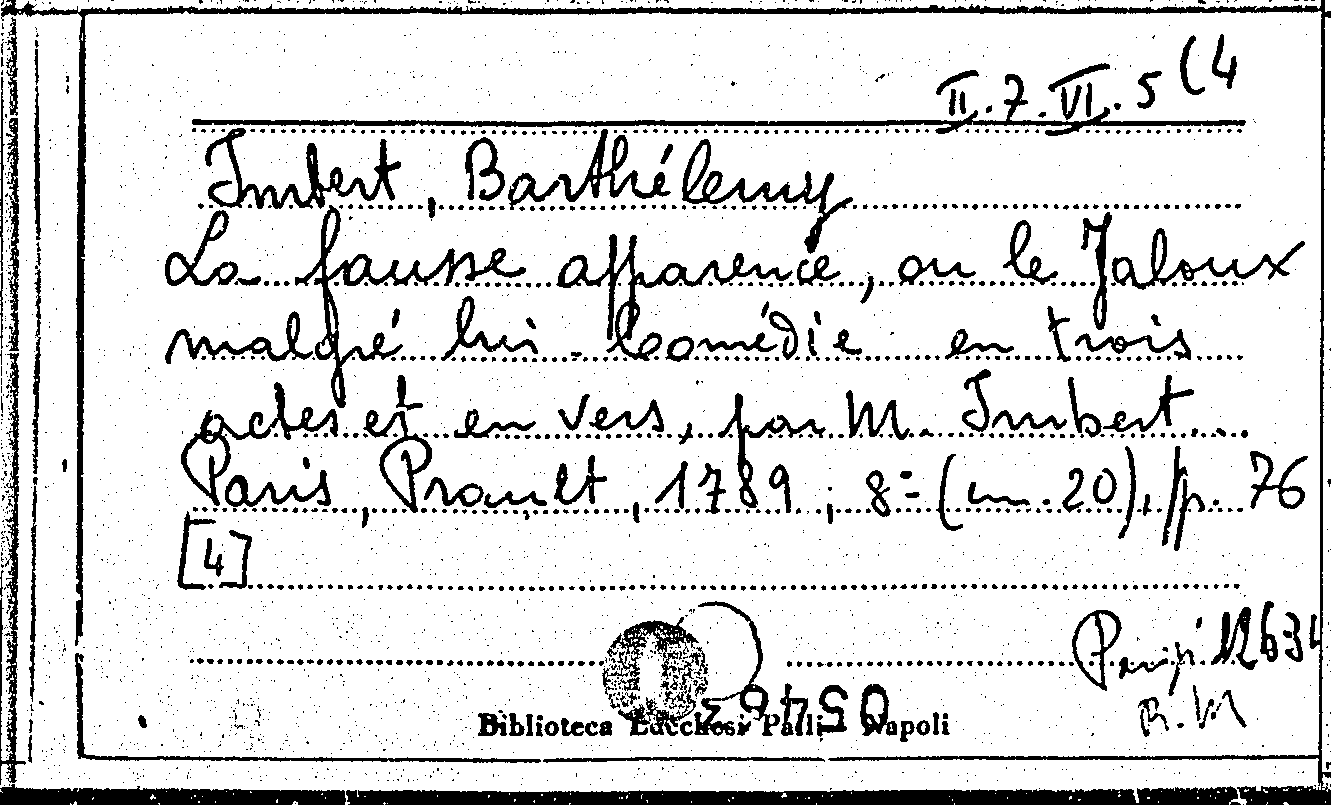 II.7.VI.5(4
Imbert, Barthélemy
La fausse apparence, ou le Jaloux
malgré lui. Comédie en trois
actes et en vers, par M. Imbert...
Paris, Prault, 1789; 8º (cm. 20), pp. 76
[4]
12634
R. M
05463
Biblioteca Lucchesi Palli - Napoli